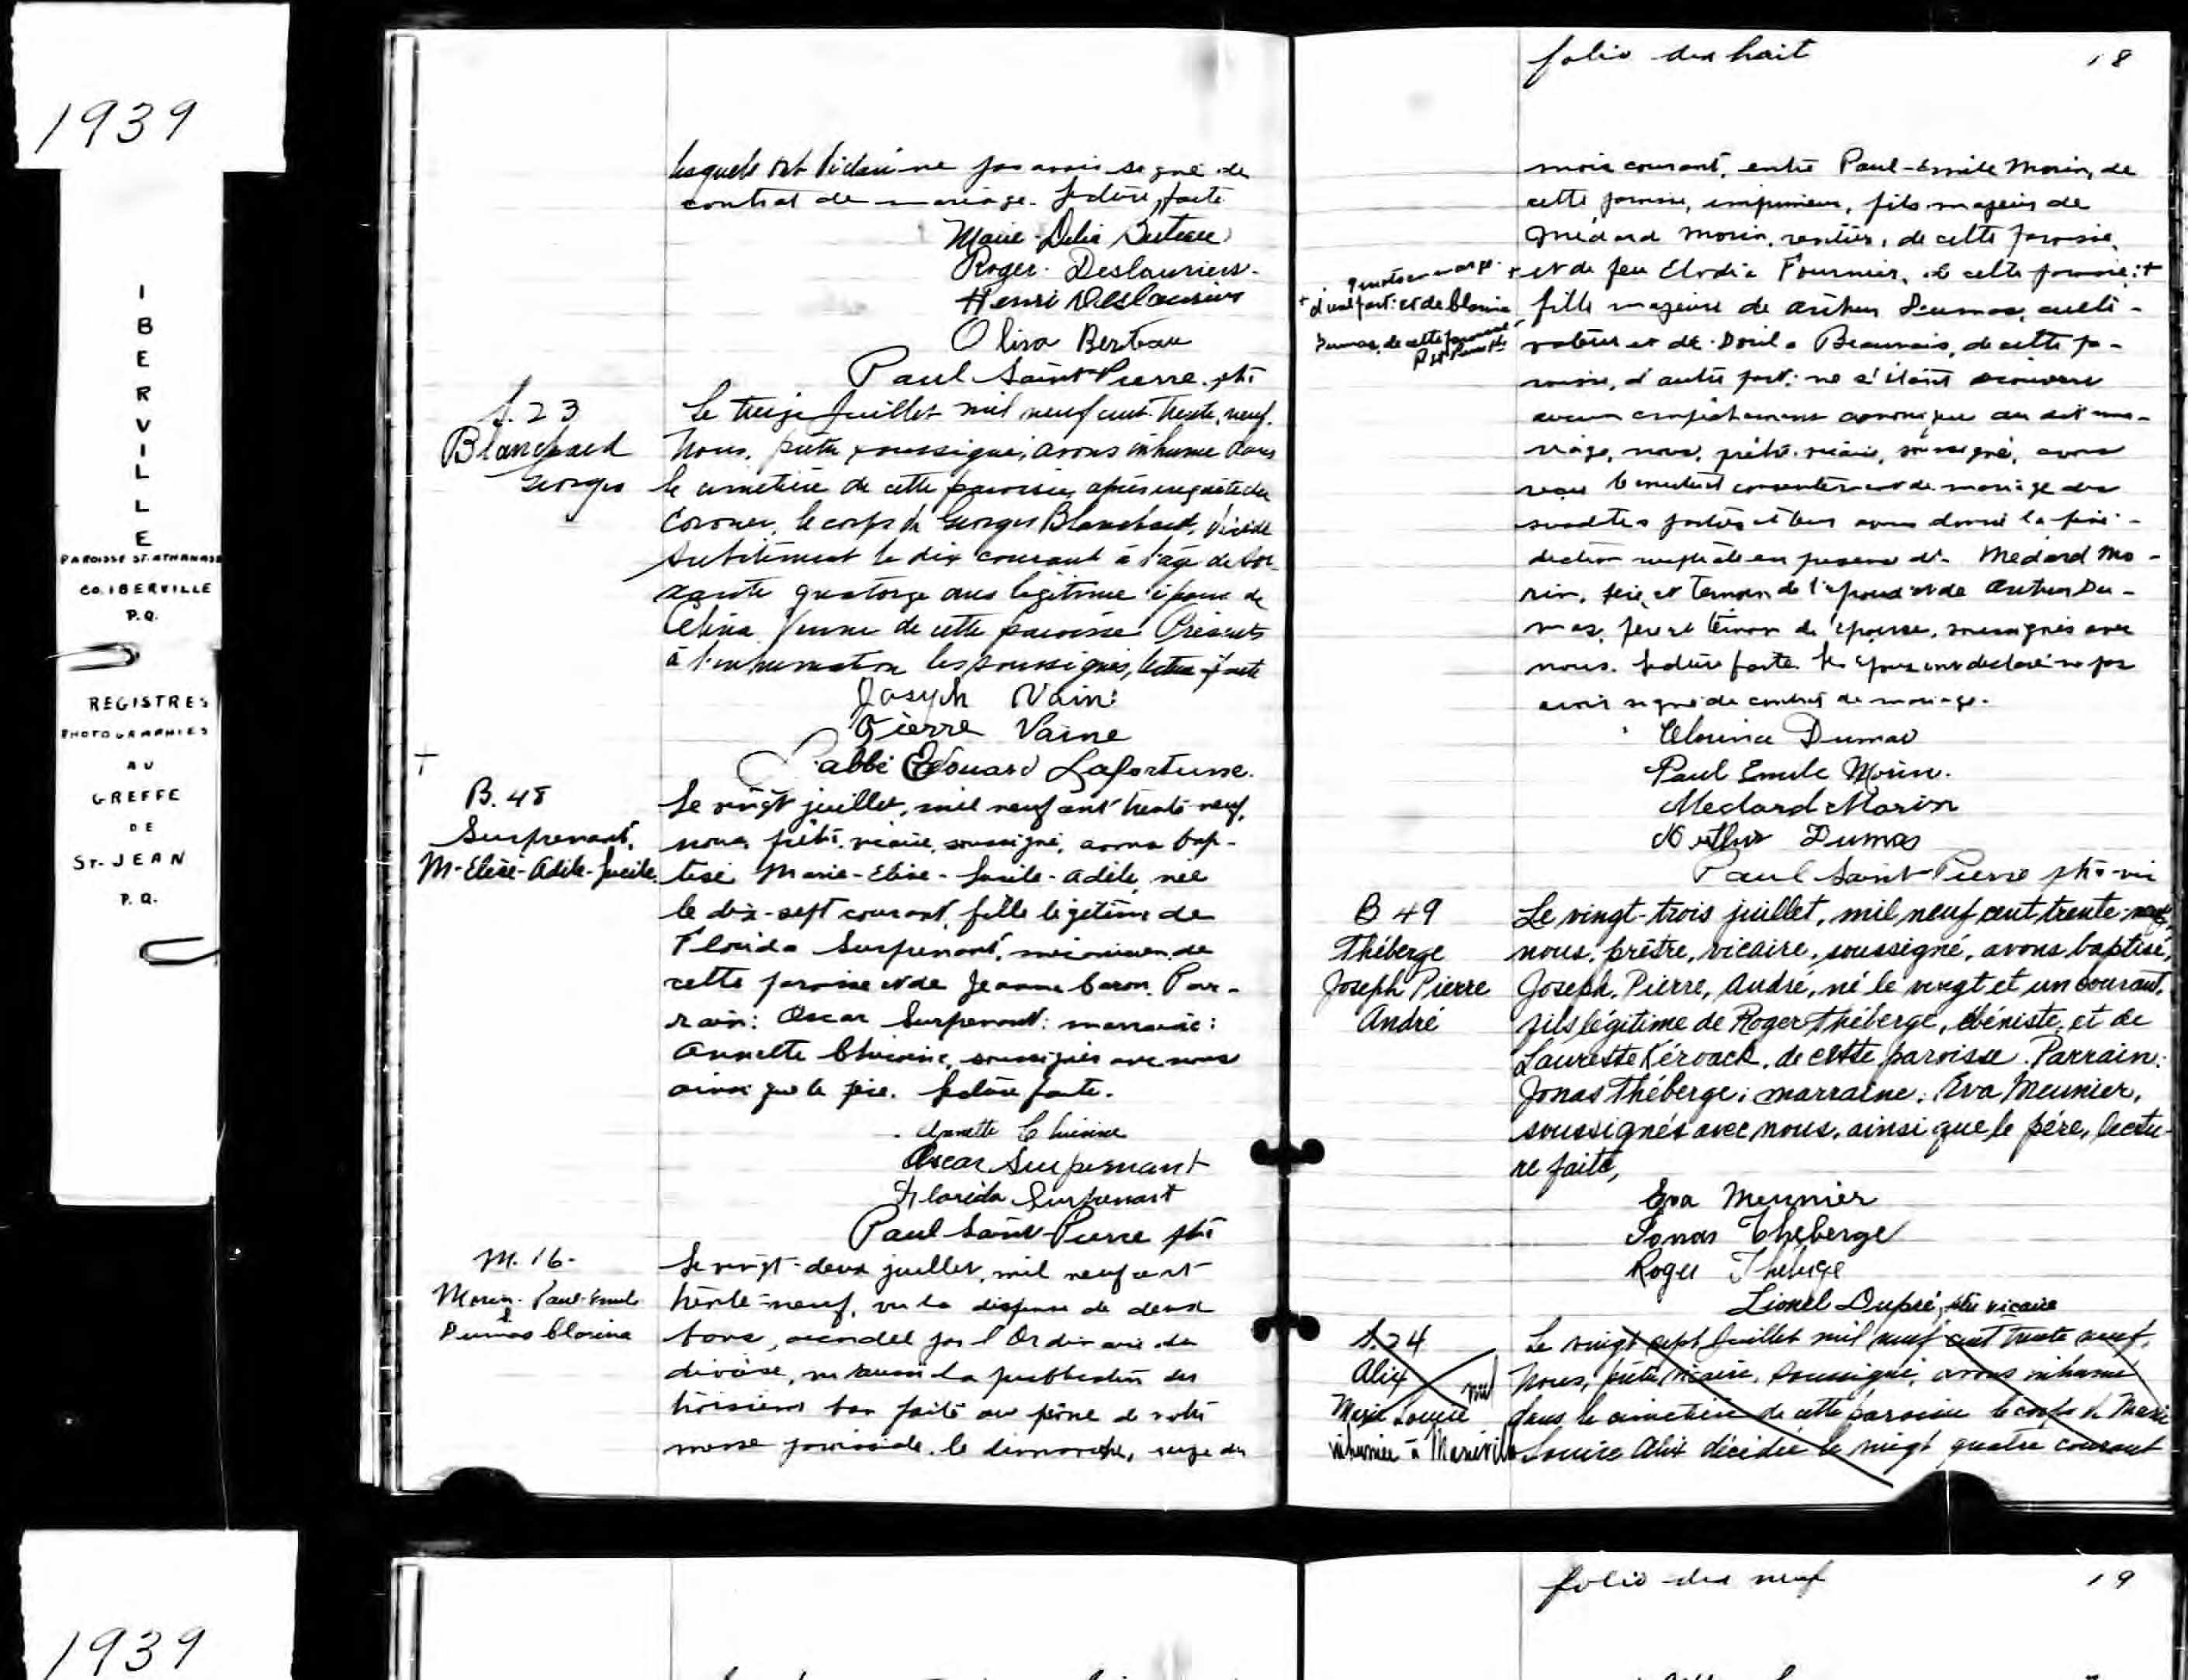 1939
IBERVILLE
PAROISSE ST. ATHANASE
CO. IBERVILLE
P.Q.
REGISTRES
PHOTOGRAPHIES
AU
GREFFE
DE
ST-JEAN
P.Q.
lesquels ont déclaré ne pas avoir signé de
contrat de mariage. Lecture faite
Marie-Delia
Roger Deslauriers
Henri Deslauriers
Oliva Berteau
Paul Saint-Pierre ptr
S.23
Blanchard
Georges
Le treize juillet mil neuf cent trente-neuf.
Nous, prêtre soussigné, avons inhumé dans
le cimetière de cette paroisse, après enquête du
Coroner, le corps de Georges Blanchard, décédé
subitement le dix courant à l'âge de soi-
xante quatorze ans légitime époux de
Celina de cette paroisse. Présents
à l'inhumation les soussignés, lecture faite
Joseph
Pierre
L'abbé Edouard Lafortune.
B. 48
Surprenant,
M-Elise-Adèle-Lucile
Le vingt juillet, mil neuf cent trente-neuf,
nous, prêtre, vicaire, soussigné, avons bap-
tisé Marie-Elise-Lucile-Adèle, née
le dix-sept courant, fille légitime de
Florido Surprenant, mécanicien, de
cette paroisse et de Jeanne Caron. Par-
rain: Oscar Surprenant: marraine:
Annette soussignés avec nous
ainsi que le père. Lecture faite.
Annette
Oscar Surprenant
Florido Surprenant
Paul Saint-Pierre ptr
M. 16-
Morin Paul-Emile
&
Dumas Clorina
Le vingt-deux juillet, mil neuf cent
trente-neuf, vu la dispense de deux
bans, accordée par l'Ordinaire du
diocèse, vu aussi la publication du
troisième ban faite au prône de notre
messe paroissiale, le dimanche, seize du
folio dix huit 18
mois courant, entre Paul-Emile Morin, de
cette paroisse, imprimeur, fils majeur de
Médard Morin, rentier, de cette paroisse,
+ et de feu Elodia Fournier, de cette paroisse: +
+ d'une part: et de Clorina
Dumas, de cette paroisse
fille majeure de Arthur Dumas, culti-
vateur et de Beauvais, de cette pa-
roisse, d'autre part: ne s'étant découvert
aucun empêchement canonique au dit ma-
riage, nous, prêtre, vicaire, soussigné, avons
reçu le mutuel consentement de mariage des
susdites parties et leur avons donné la béné-
diction nuptiale en présence de Médard Mo-
rin, père et témoin de l'époux et de Arthur Du-
mas, père et témoin de l'épouse, soussignés avec
nous. Lecture faite. Les époux ont déclaré ne pas
avoir signé de contrat de mariage.
Clorina Dumas
Paul Emile Morin.
Medard Morin
Arthur Dumas
Paul Saint-Pierre ptr-vic
B 49
Théberge
Joseph Pierre
André
Le vingt-trois juillet, mil neuf cent trente-neuf,
nous, prêtre, vicaire, soussigné, avons baptisé,
Joseph, Pierre, André, né le vingt et un courant,
fils légitime de Roger Théberge, ébéniste, et de
Laurette Kérvack, de cette paroisse. Parrain:
Jonas Théberge; marraine: Eva Meunier,
soussignés avec nous, ainsi que le père, lectu-
re faite,
Eva Meunier
Jonas Theberge
Roger Théberge
Lionel Dupré, ptr vicaire
S.24
Alix
Marie Louise
nul
inhumée à Marieville
Le vingt sept juillet mil neuf cent trente neuf,
Nous, prêtre vicaire, soussigné, avons inhumé
dans le cimetière de cette paroisse le corps de Marie
Louise Alix décédée le vingt quatre courant
1939
folio dix neuf 19